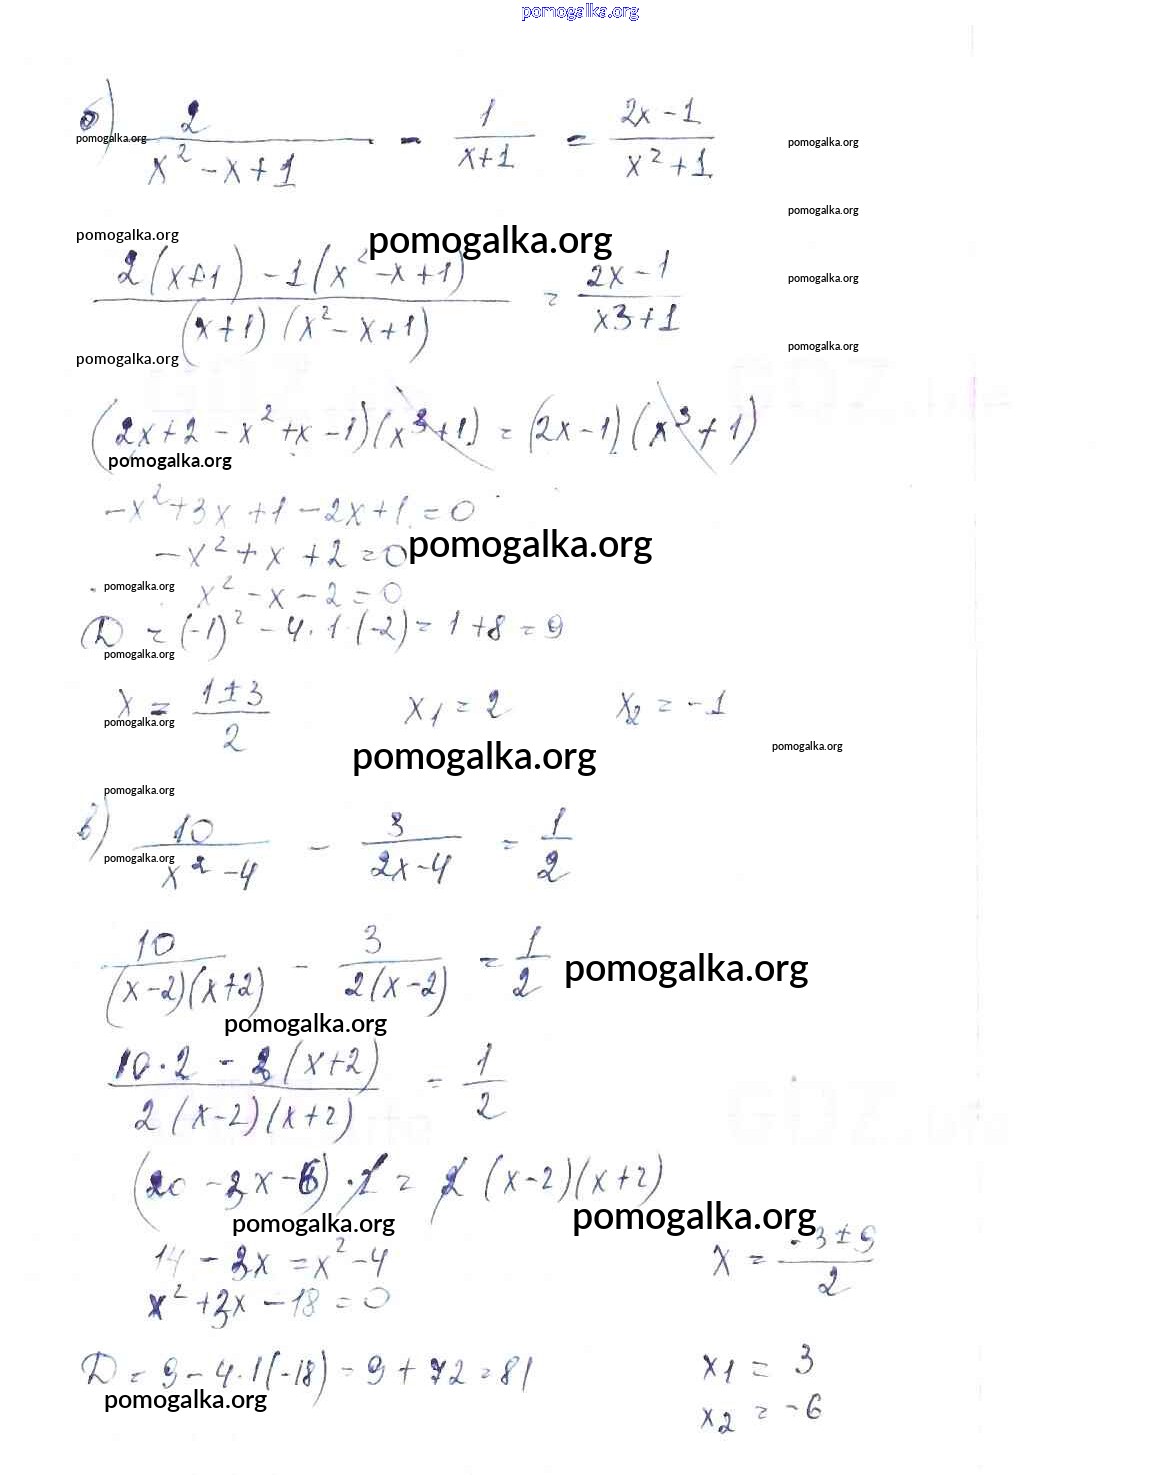 pomogalka.org
б) 2/(x² - x + 1) - 1/(x+1) = (2x - 1)/(x² + 1)
pomogalka.org pomogalka.org
pomogalka.org
pomogalka.org pomogalka.org
(2(x+1) - 1(x² - x + 1))/((x+1)(x² - x + 1)) = (2x - 1)/(x3 + 1)
pomogalka.org
pomogalka.org pomogalka.org
(2x + 2 - x² + x - 1)(x³ + 1) = (2x - 1)(x³ + 1)
pomogalka.org
-x² + 3x + 1 - 2x + 1 = 0
-x² + x + 2 = 0 pomogalka.org
pomogalka.org x² - x - 2 = 0
D = (-1)² - 4 · 1 · (-2) = 1 + 8 = 9
pomogalka.org
x = (1 ± 3)/2 x₁ = 2 x₂ = -1
pomogalka.org
pomogalka.org pomogalka.org
pomogalka.org
в) 10/(x² - 4) - 3/(2x - 4) = 1/2
pomogalka.org
10/((x-2)(x+2)) - 3/(2(x-2)) = 1/2 pomogalka.org
pomogalka.org
(10 · 2 - 3(x+2))/(2(x-2)(x+2)) = 1/2
(20 - 3x - 6) · 2 = 2(x-2)(x+2)
pomogalka.org pomogalka.org
14 - 3x = x² - 4 x = (-3 ± 9)/2
x² + 3x - 18 = 0
D = 9 - 4 · 1(-18) = 9 + 72 = 81 x₁ = 3
pomogalka.org x₂ = -6